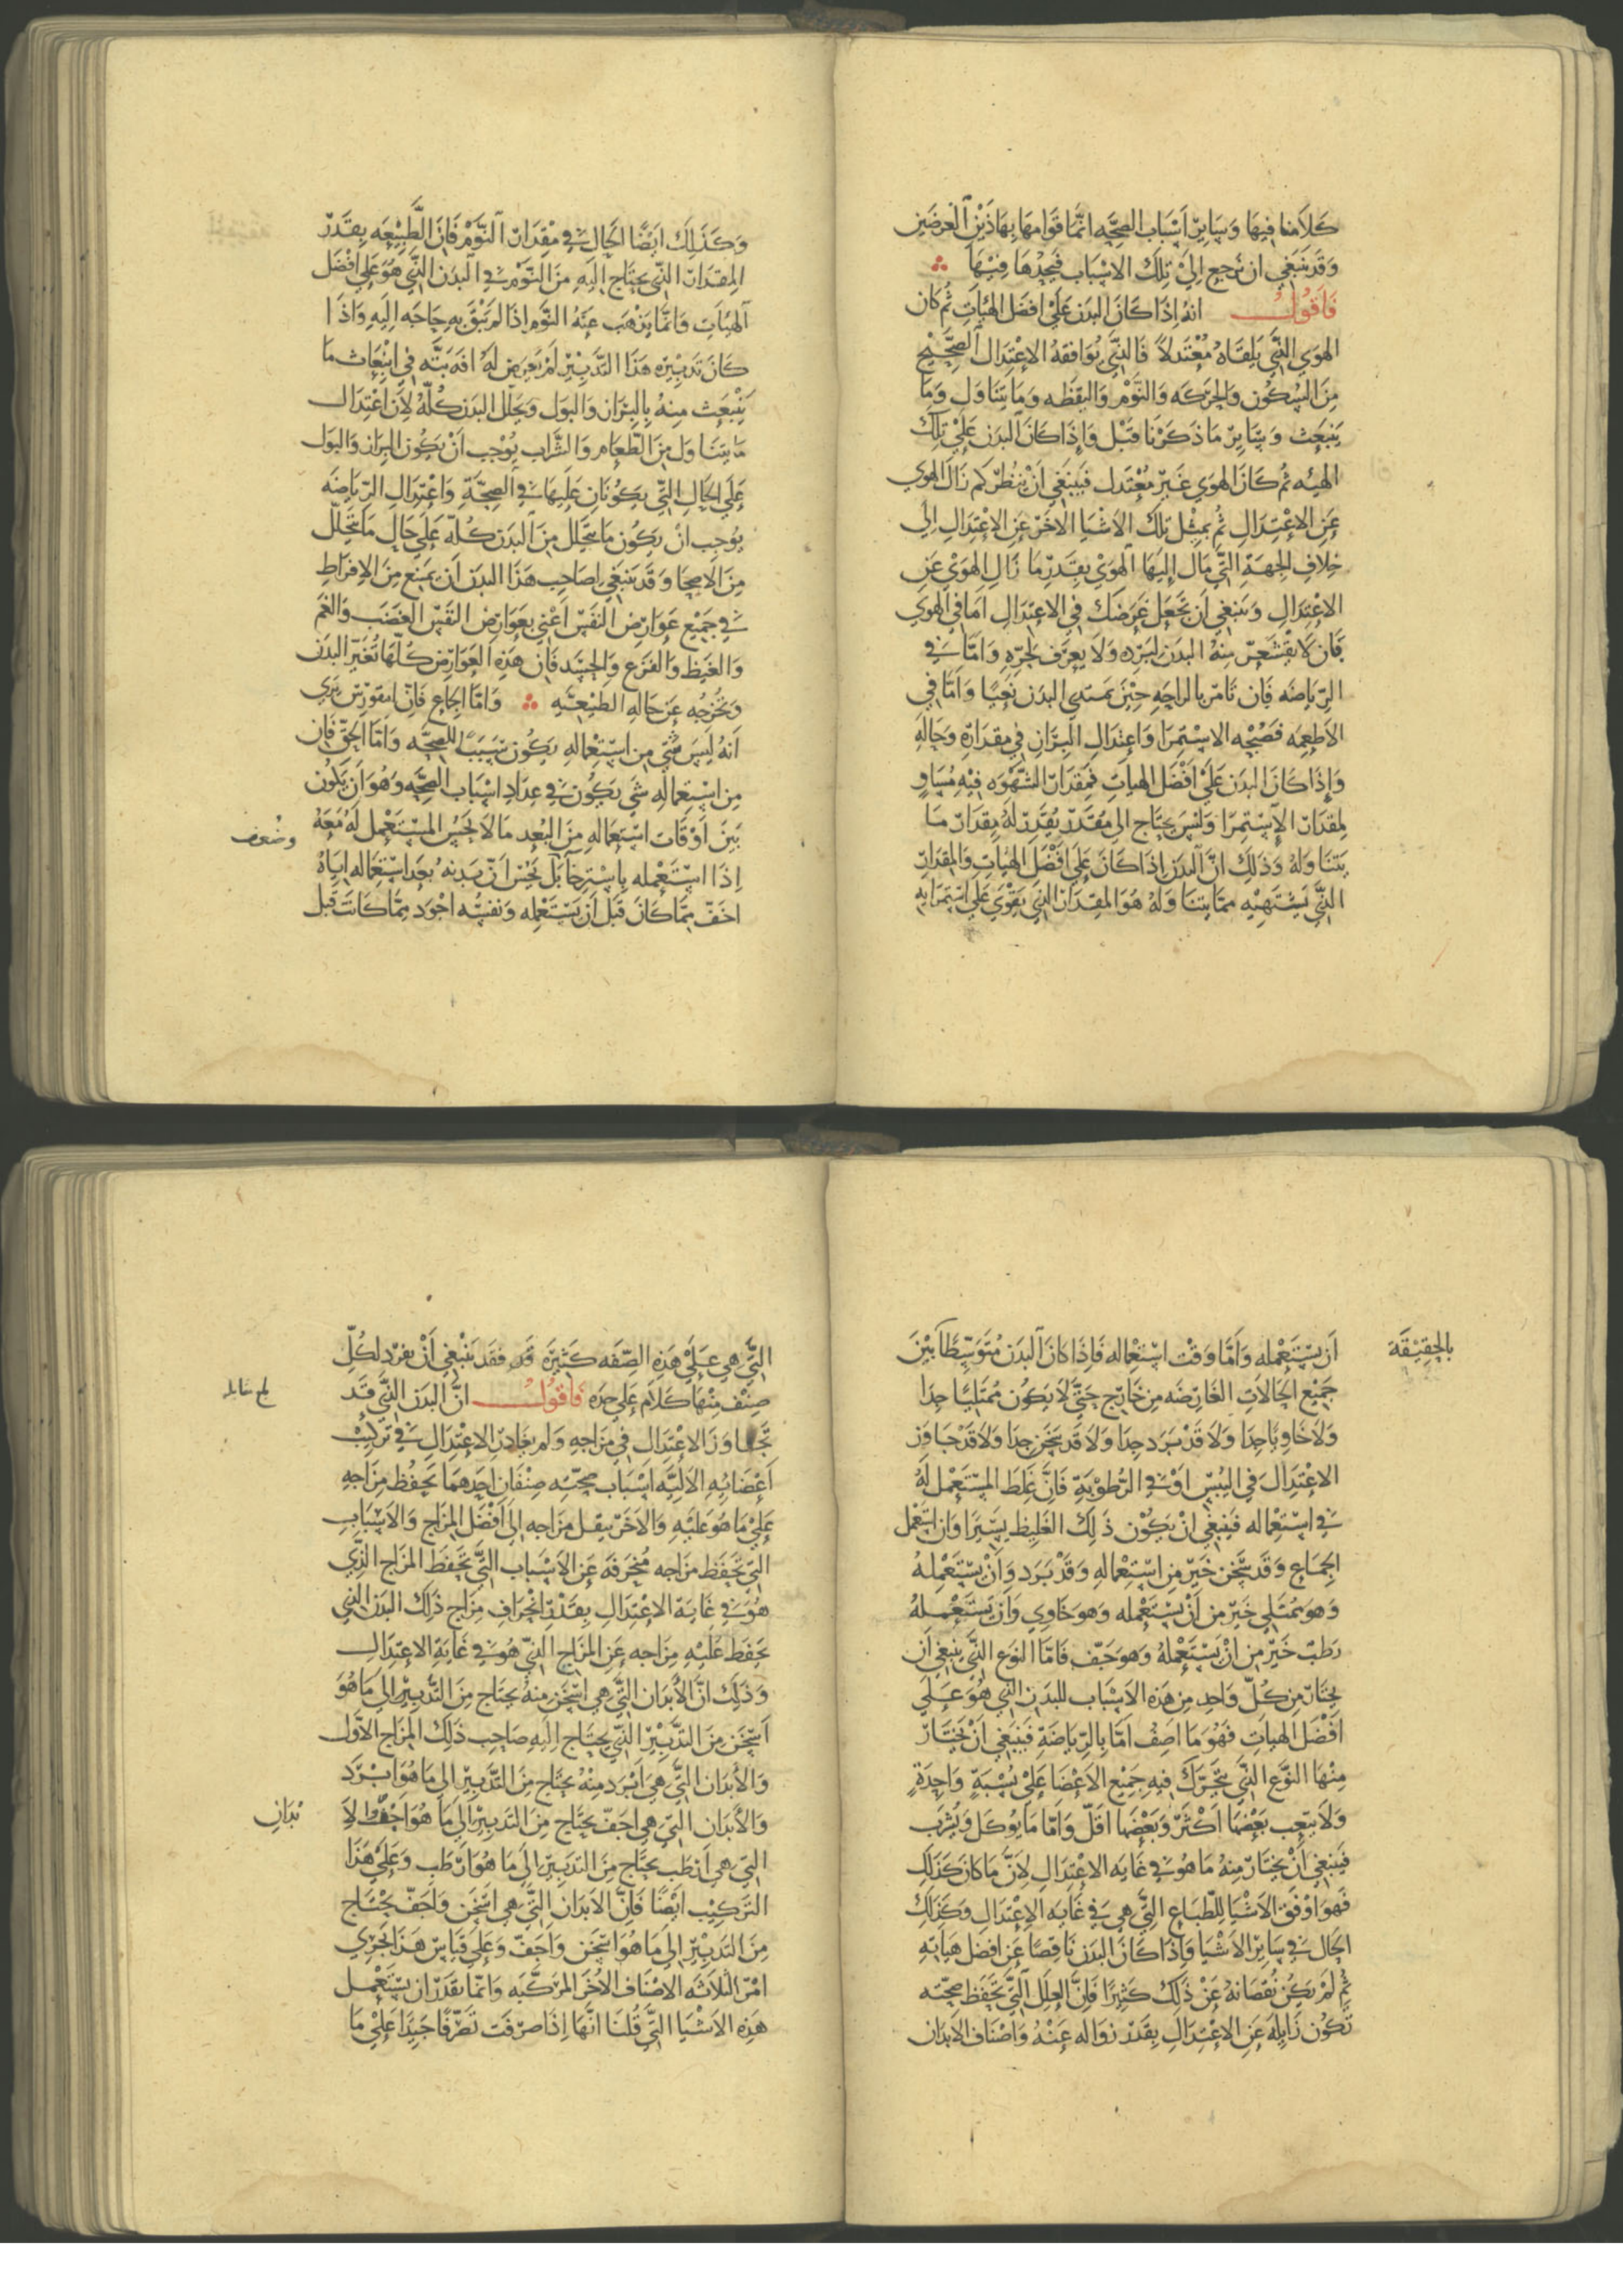 كلامنا فيها وساير اسباب الصحه انما قوامها بهاذين الغرضين
وقد ينبغي ان نرجع الى تلك الاسباب فنجدها فيها
فاقول انه اذا كان البدن على افضل الهيات ثم كان
الهوى الذي يلقاه معتدلا فالذي يوافقه الاعتدال الصحيح
من السكون والحركه والنوم واليقظه وما يتناول وما
ينبعث وساير ما ذكرنا قبل واذا كان البدن على تلك
الهيه ثم كان الهوى غير معتدل فينبغي ان ينظر كم زال الهوى
عن الاعتدال ثم بمثل تلك الاشيا الاخر عن الاعتدال الى
خلاف الجهة التي مال اليها الهوى بقدر ما زال الهوى عن
الاعتدال وينبغي ان تجعل غرضك في الاعتدال اما في الهوى
فان لا يقشعر منه البدن لبرده ولا يعرق لحره واما في
الرياضه فان تامر بالراحه حين يبتدي البدن تعبا واما في
الاطعمه فصحه الاستمرا واعتدال البراز في مقداره وحاله
واذا كان البدن على افضل الهيات فمقدار الشهوه فيه مساو
لمقدار الاستمرا وليس يحتاج الى مقدر يقدر له مقدار ما
يتناوله وذلك ان البدن اذا كان على افضل الهيات والمقدار
الذي يشتهيه مما يتناوله هو المقدار الذي يقوى على استمرايه
وكذلك ايضا الحال في مقدار النوم فان الطبيعه بقدر
المقدار الذي يحتاج اليه من النوم في البدن الذي هو على افضل
الهيات وانما يذهب عنه النوم اذا لم يبق به حاجه اليه واذا
كان تدبيره هذا التدبير لم يعرض له افه بته في انبعاث ما
ينبعث منه بالبراز والبول وتحلل البدن كله لان اعتدال
ما يتناول من الطعام والشراب يوجب ان يكون البراز والبول
على الحال التي يكونان عليها في الصحة واعتدال الرياضه
يوجب ان يكون ما يتحلل من البدن كله على حال ما يتحلل
من الاصحا وقد ينبغي لصاحب هذا البدن ان يمنع من الافراط
في جميع عوارض النفس اعني بعوارض النفس الغضب والغم
والغيظ والفزع والحسد فان هذه العوارض كلها تغير البدن
وتخرجه عن حاله الطبيعيه واما الجماع فان ابيقورس يرى
انه ليس شي من استعماله يكون سببا للصحه واما الحق فان
من استعماله شي يكون في عداد اسباب الصحه وهو ان يكون
بين اوقات استعماله من البعد ما لا يحس المستعمل له معه
وضعف
اذا استعمله باسترخا بل يحس ان بدنه بعد استعماله اياه
اخف مما كان قبل ان يستعمله ونفسه اجود مما كانت قبل
بالحقيقة
ان يستعمله واما وقت استعماله فاذا كان البدن متوسطا بين
جميع الحالات العارضه من خارج حتى لا يكون ممتليا جدا
ولا خاويا جدا ولا قد برد جدا ولا قد سخن جدا ولا قد جاوز
الاعتدال في اليبس او في الرطوبة فان غلط المستعمل له
في استعماله فينبغي ان يكون ذلك الغليظ يسيرا وان استعمل
الجماع وقد سخن خير من استعماله وقد برد وان يستعمله
وهو ممتلي خير من ان يستعمله وهو خاوي وان يستعمله
رطب خير من ان يستعمله وهو جف فاما النوع الذي ينبغي ان
يختار من كل واحد من هذه الاسباب للبدن الذي هو على
افضل الهيات فهو ما اصف اما بالرياضة فينبغي ان يختار
منها النوع الذي يتحرك فيه جميع الاعضا على نسبة واحدة
ولا يتعب بعضها اكثر وبعضها اقل واما ما يوكل ويشرب
فينبغي ان يختار منه ما هو في غايه الاعتدال لان ما كان كذلك
فهو اوفق الاشيا للطباع التي هي في غايه الاعتدال وكذلك
الحال في ساير الاشيا واذا كان البدن ناقصا عن افضل هياته
ثم لم يكن نقصانه عن ذلك كثيرا فان العلل التي تحفظ صحته
تكون زايله عن الاعتدال بقدر زواله عنه واصناف الابدان
التي هي على هذه الصفه كثيرة قد فقد ينبغي ان يفرد لكل
صنف منها كلام على حده فاقول ان البدن الذي قد
تجاوز الاعتدال في مزاجه ولم يغادر الاعتدال في تركيب
اعضائه الاليه اسباب صحته صنفان احدهما يحفظ مزاجه
على ما هو عليه والاخر ينقل مزاجه الى افضل المزاج والاسباب
التي تحفظ مزاجه منحرفه عن الاسباب التي تحفظ المزاج الذي
هو في غاية الاعتدال بقدر انحراف مزاج ذلك البدن الذي
يحفظ عليه مزاجه عن المزاج الذي هو في غاية الاعتدال
وذلك ان الابدان التي هي اسخن منه يحتاج من التدبير الى ما هو
اسخن من التدبير الذي يحتاج اليه صاحب ذلك المزاج الاول
والابدان التي هي ابرد منه يحتاج من التدبير الى ما هو ابرد
والابدان التي هي اجف يحتاج من التدبير الى ما هو اجف والا
بدان
التي هي ارطب يحتاج من التدبير الى ما هو ارطب وعلى هذا
التركيب ايضا فان الابدان التي هي اسخن واجف يحتاج
من التدبير الى ما هو اسخن واجف وعلى قياس هذا يجري
امر الثلاثه الاصناف الاخر المركبه وانما يقدر ان يستعمل
هذه الاشيا التي قلنا انها اذا صرفت تصرفا جيدا على ما